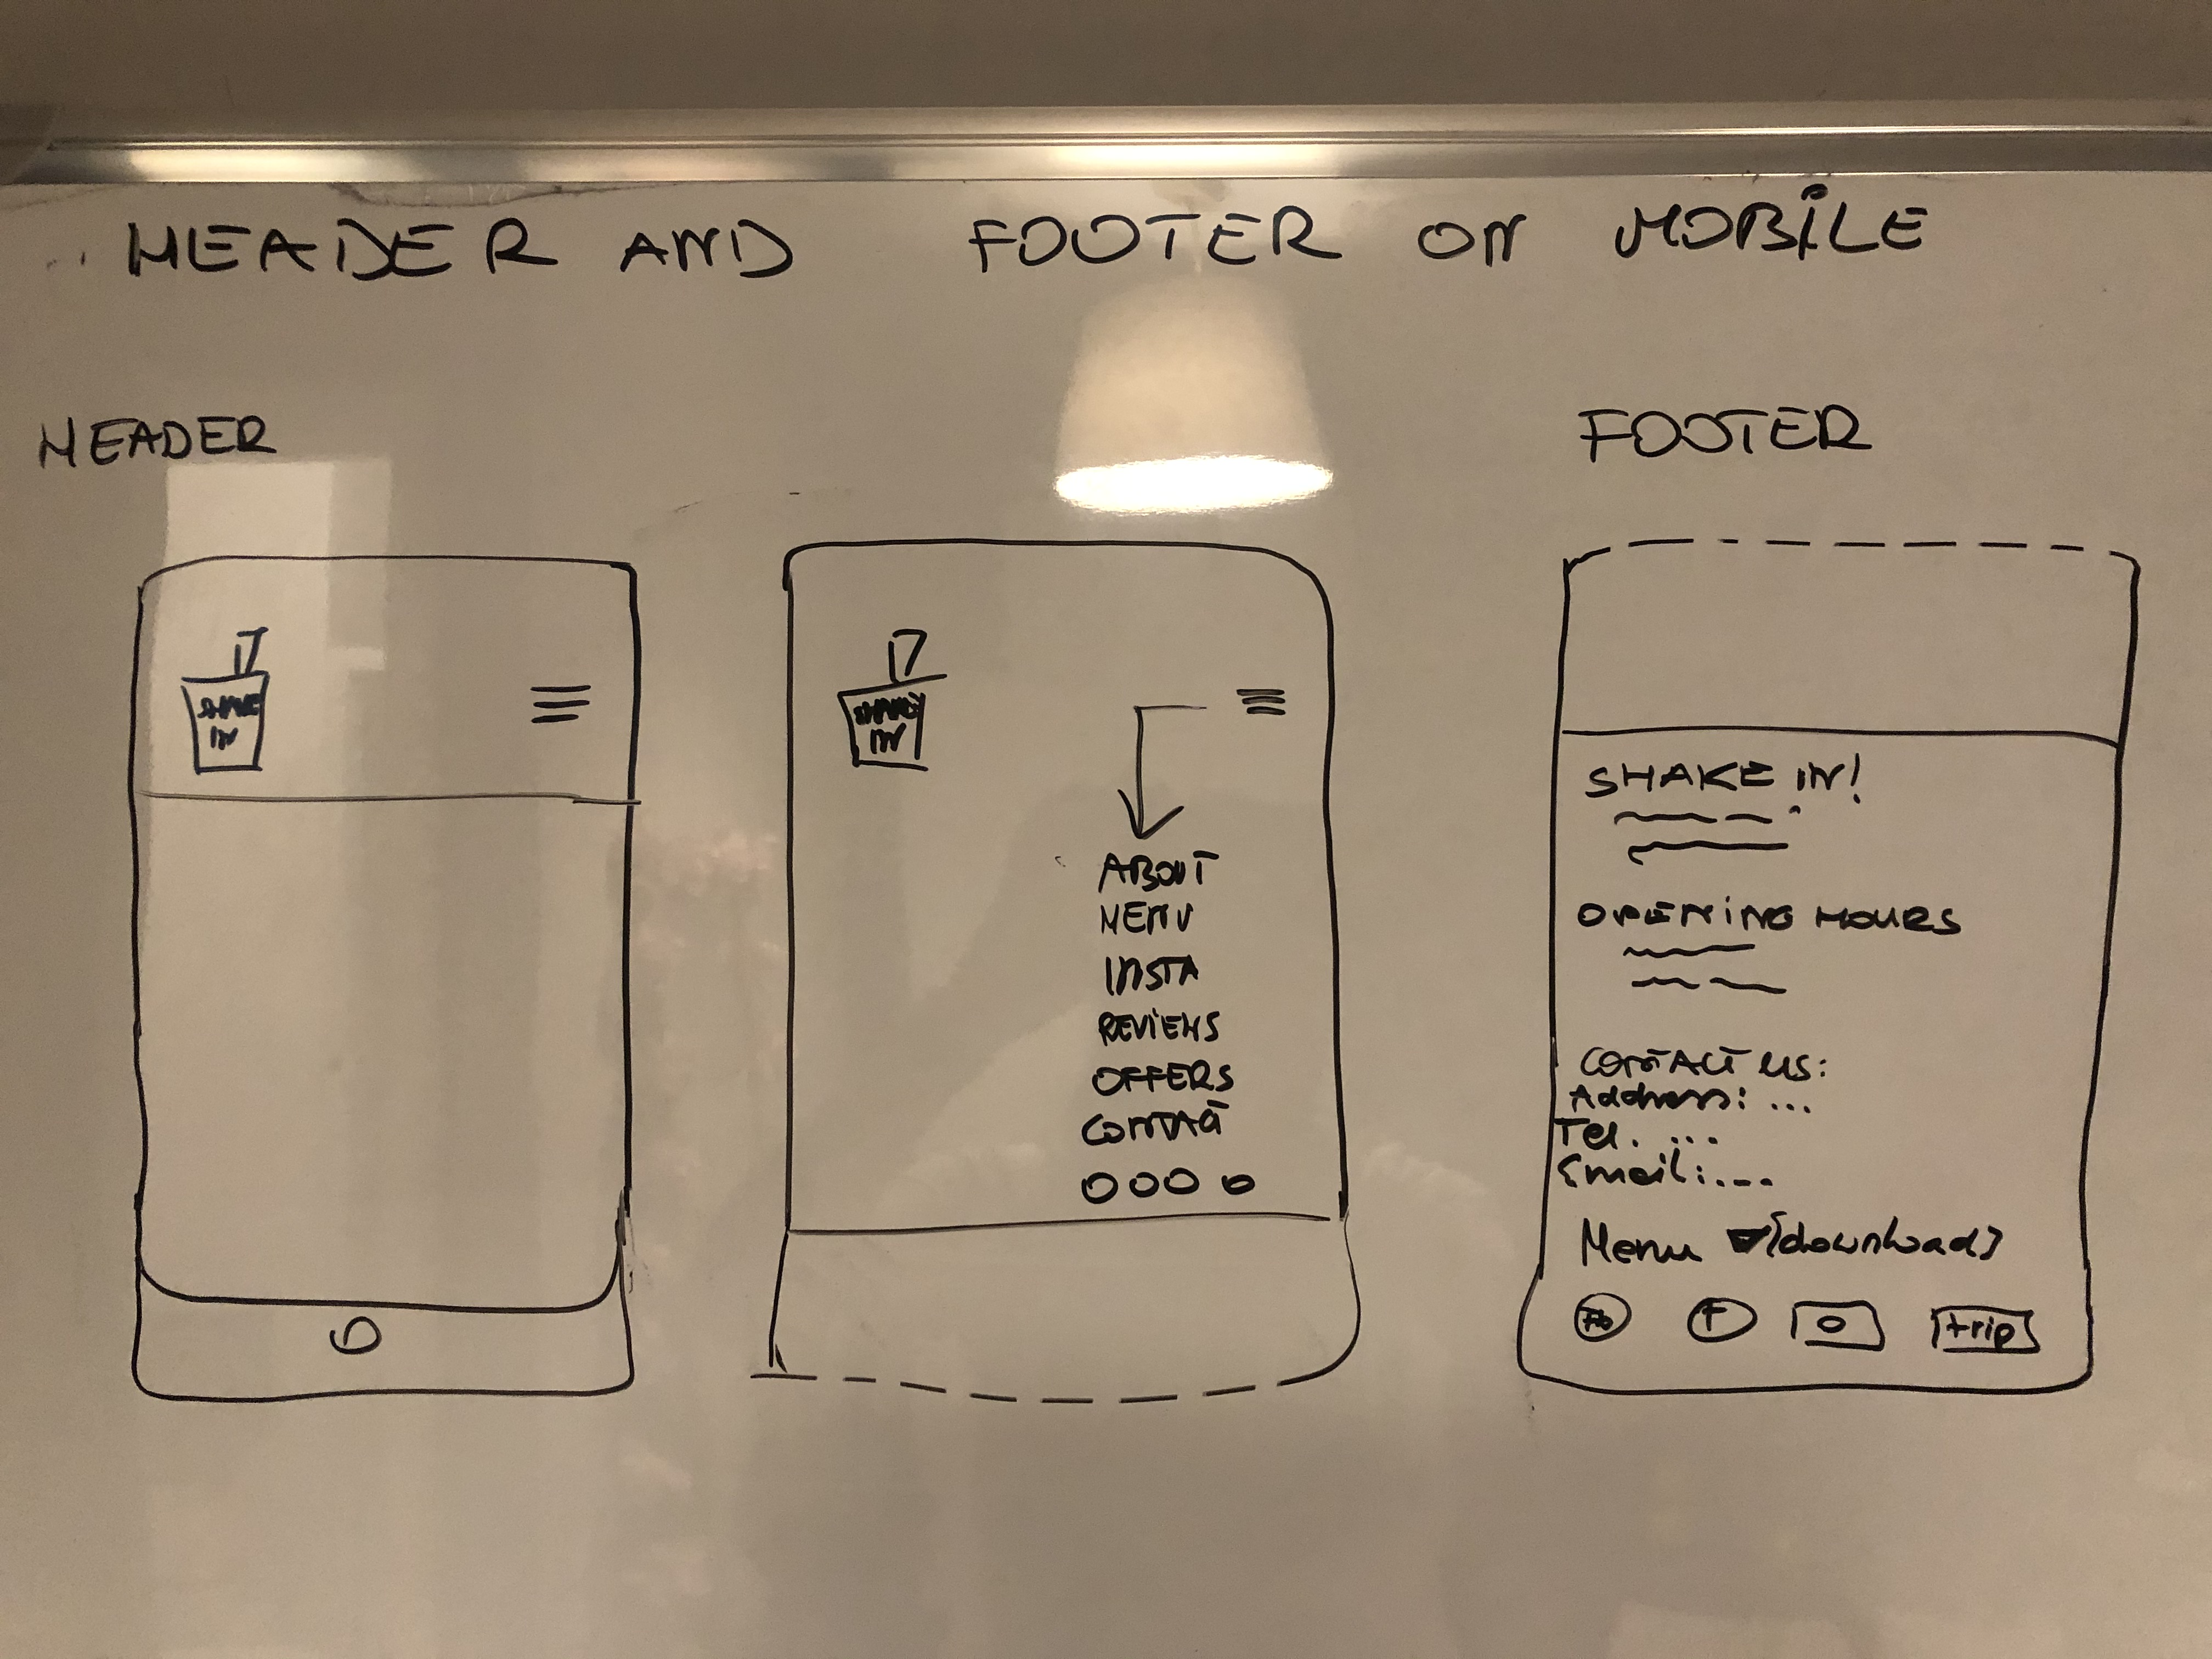 HEADER AND FOOTER ON MOBILE
HEADER
SHAKE
IN
SHAKE
IN
ABOUT
MENU
INSTA
REVIEWS
OFFERS
CONTACT
FOOTER
SHAKE IN!
OPENING HOURS
CONTACT US:
Address: ...
Tel. ...
Email: ...
Menu (download)
Fb T trip